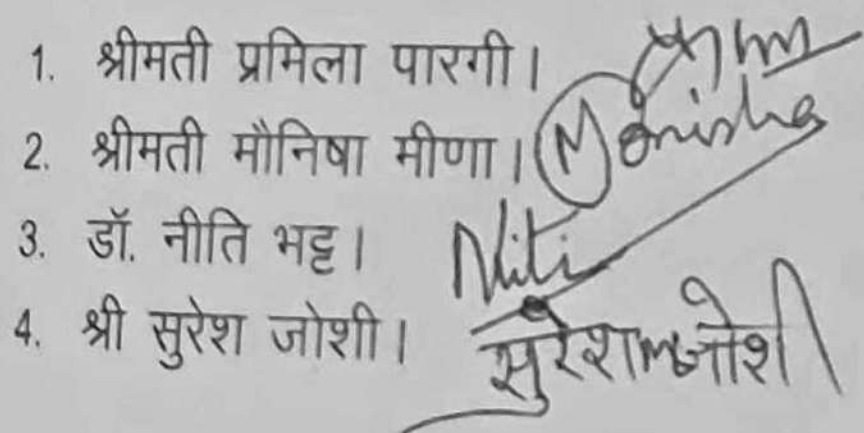 1. श्रीमती प्रमिला पारगी।
2. श्रीमती मौनिषा मीणा। Monisha
3. डॉ. नीति भट्ट। Niti
4. श्री सुरेश जोशी। सुरेश जोशी